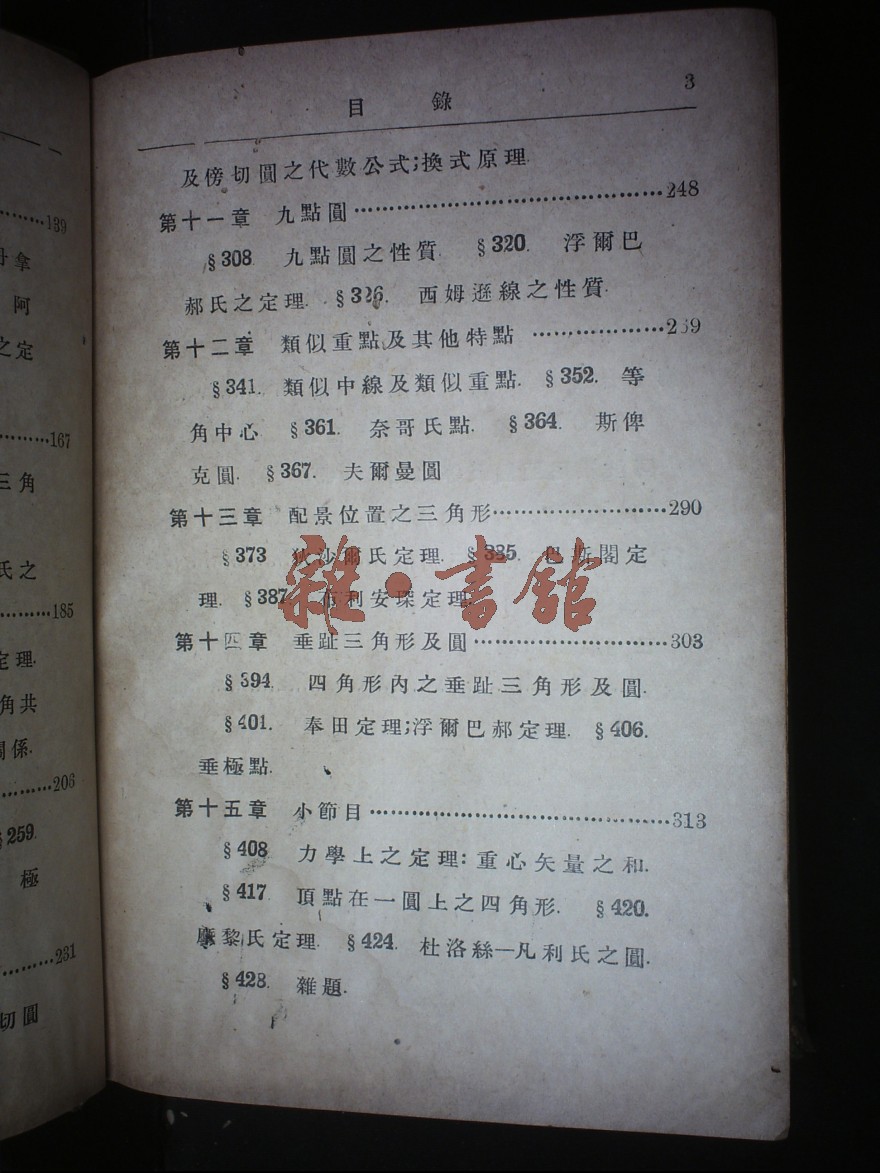 139
拿
阿
之定
167
三角
氏之
185
定理.
角共
關係.
206
§259.
極
231
切圓
目 錄 3
及傍切圓之代數公式;換式原理.
第十一章 九點圓 248
§308. 九點圓之性質. §320. 浮爾巴
郝氏之定理. §326. 西姆遜線之性質.
第十二章 類似重點及其他特點 269
§341. 類似中線及類似重點. §352. 等
角中心. §361. 奈哥氏點. §364. 斯俾
克圓. §367. 夫爾曼圓
第十三章 配景位置之三角形 290
§373 狄沙爾氏定理. §385. 巴斯閣定
理. §387. 布利安琛定理.
第十四章 垂趾三角形及圓 303
§394. 四角形內之垂趾三角形及圓.
§401. 奉田定理;浮爾巴郝定理. §406.
垂極點.
第十五章 小節目 313
§408 力學上之定理:重心矢量之和.
§417. 頂點在一圓上之四角形. §420.
摩黎氏定理. §424. 杜洛絲—凡利氏之圓.
§428. 雜題.
雜·書館